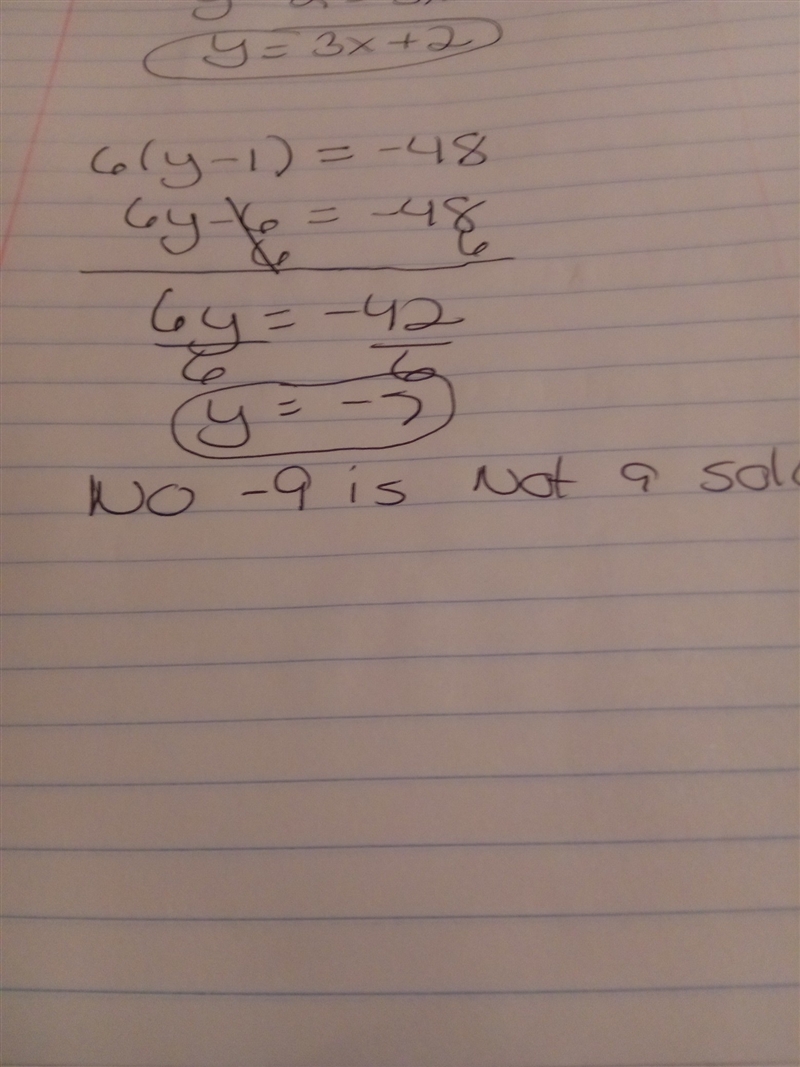 y = 3x + 2
6(y - 1) = -48
6y - 6 = -48
6 6
6y = -42
6 6
y = -7
No -9 is Not a